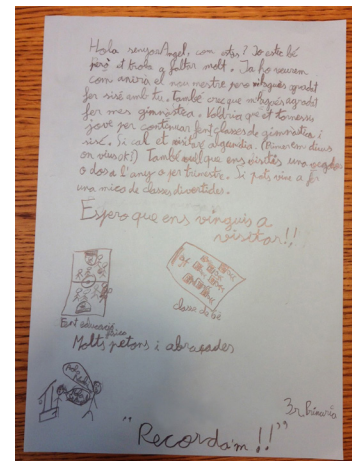 Hola senyor Àngel, com estàs? Jo estic bé
però et trobo a faltar molt. Ja ho veurem
com anirà el nou mestre pero m'hagués agradat
fer sisè amb tu. També crec que m'hagués agradat
fer més gimnàstica. Voldria que et tornessis
jove per continuar fent classes de gimnàstica i
sisè. Si cal et visitaré algun dia. (Primer em dius
on vius ok?) També vull que ens visitis una vegada
o dos a l'any o per trimestre. Si pots vine a fer
una mica de classes divertides.
Espero que ens vinguis a
visitar!!
Fent educació física
classe de 6è
Molts petons i abraçades
3r Primària
"Recorda'm!!"